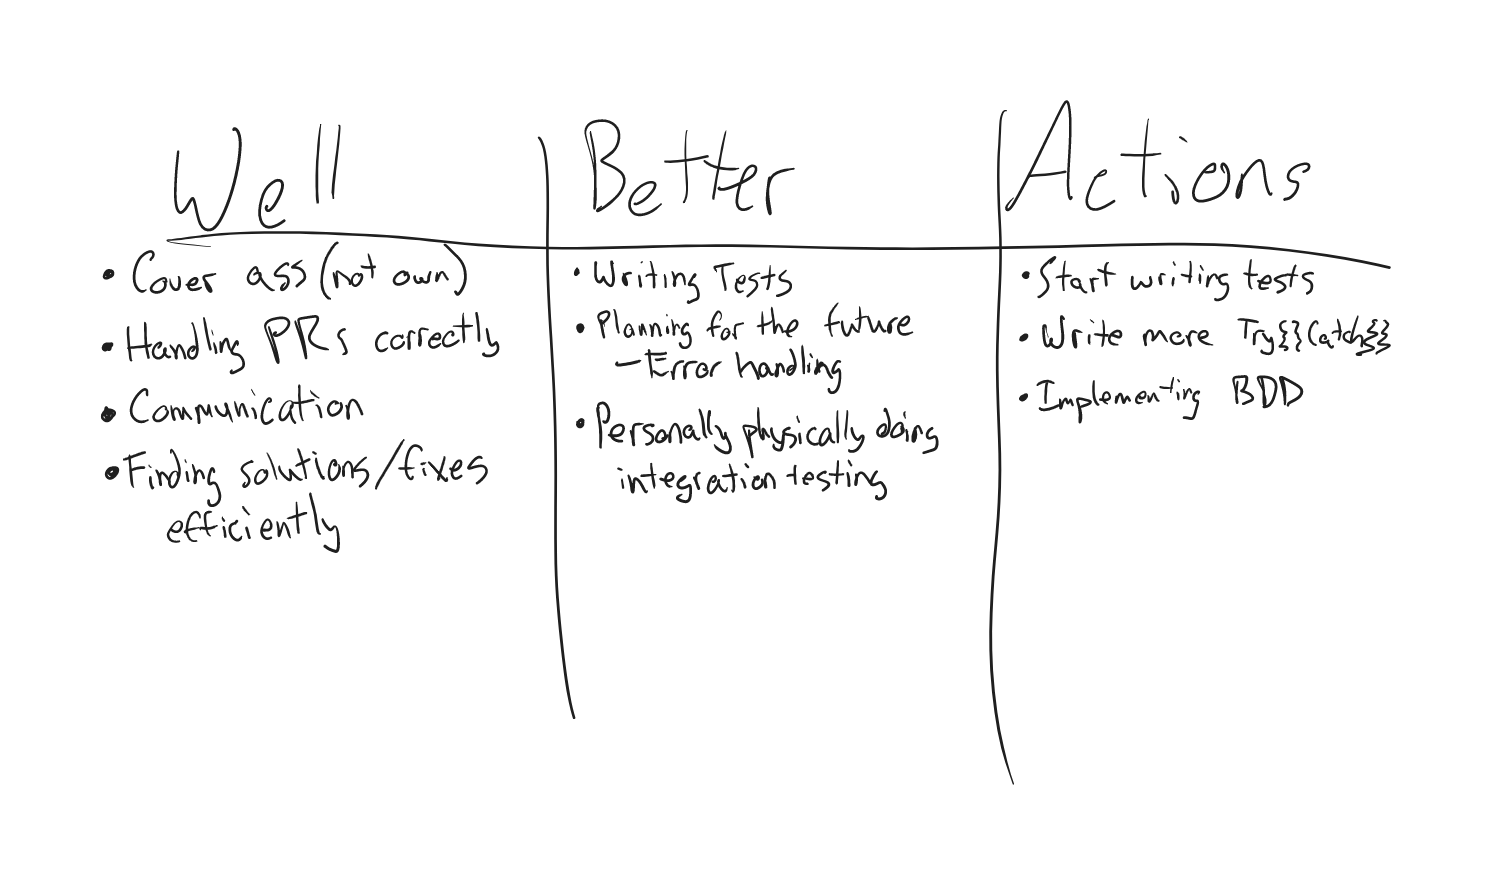 Well
• Cover ass (not own)
• Handling PRs correctly
• Communication
• Finding solutions/fixes
efficiently
Better
• Writing Tests
• Planning for the future
– Error handling
• Personally physically doing
integration testing
Actions
• Start writing tests
• Write more Try{}{Catch}}
• Implementing BDD